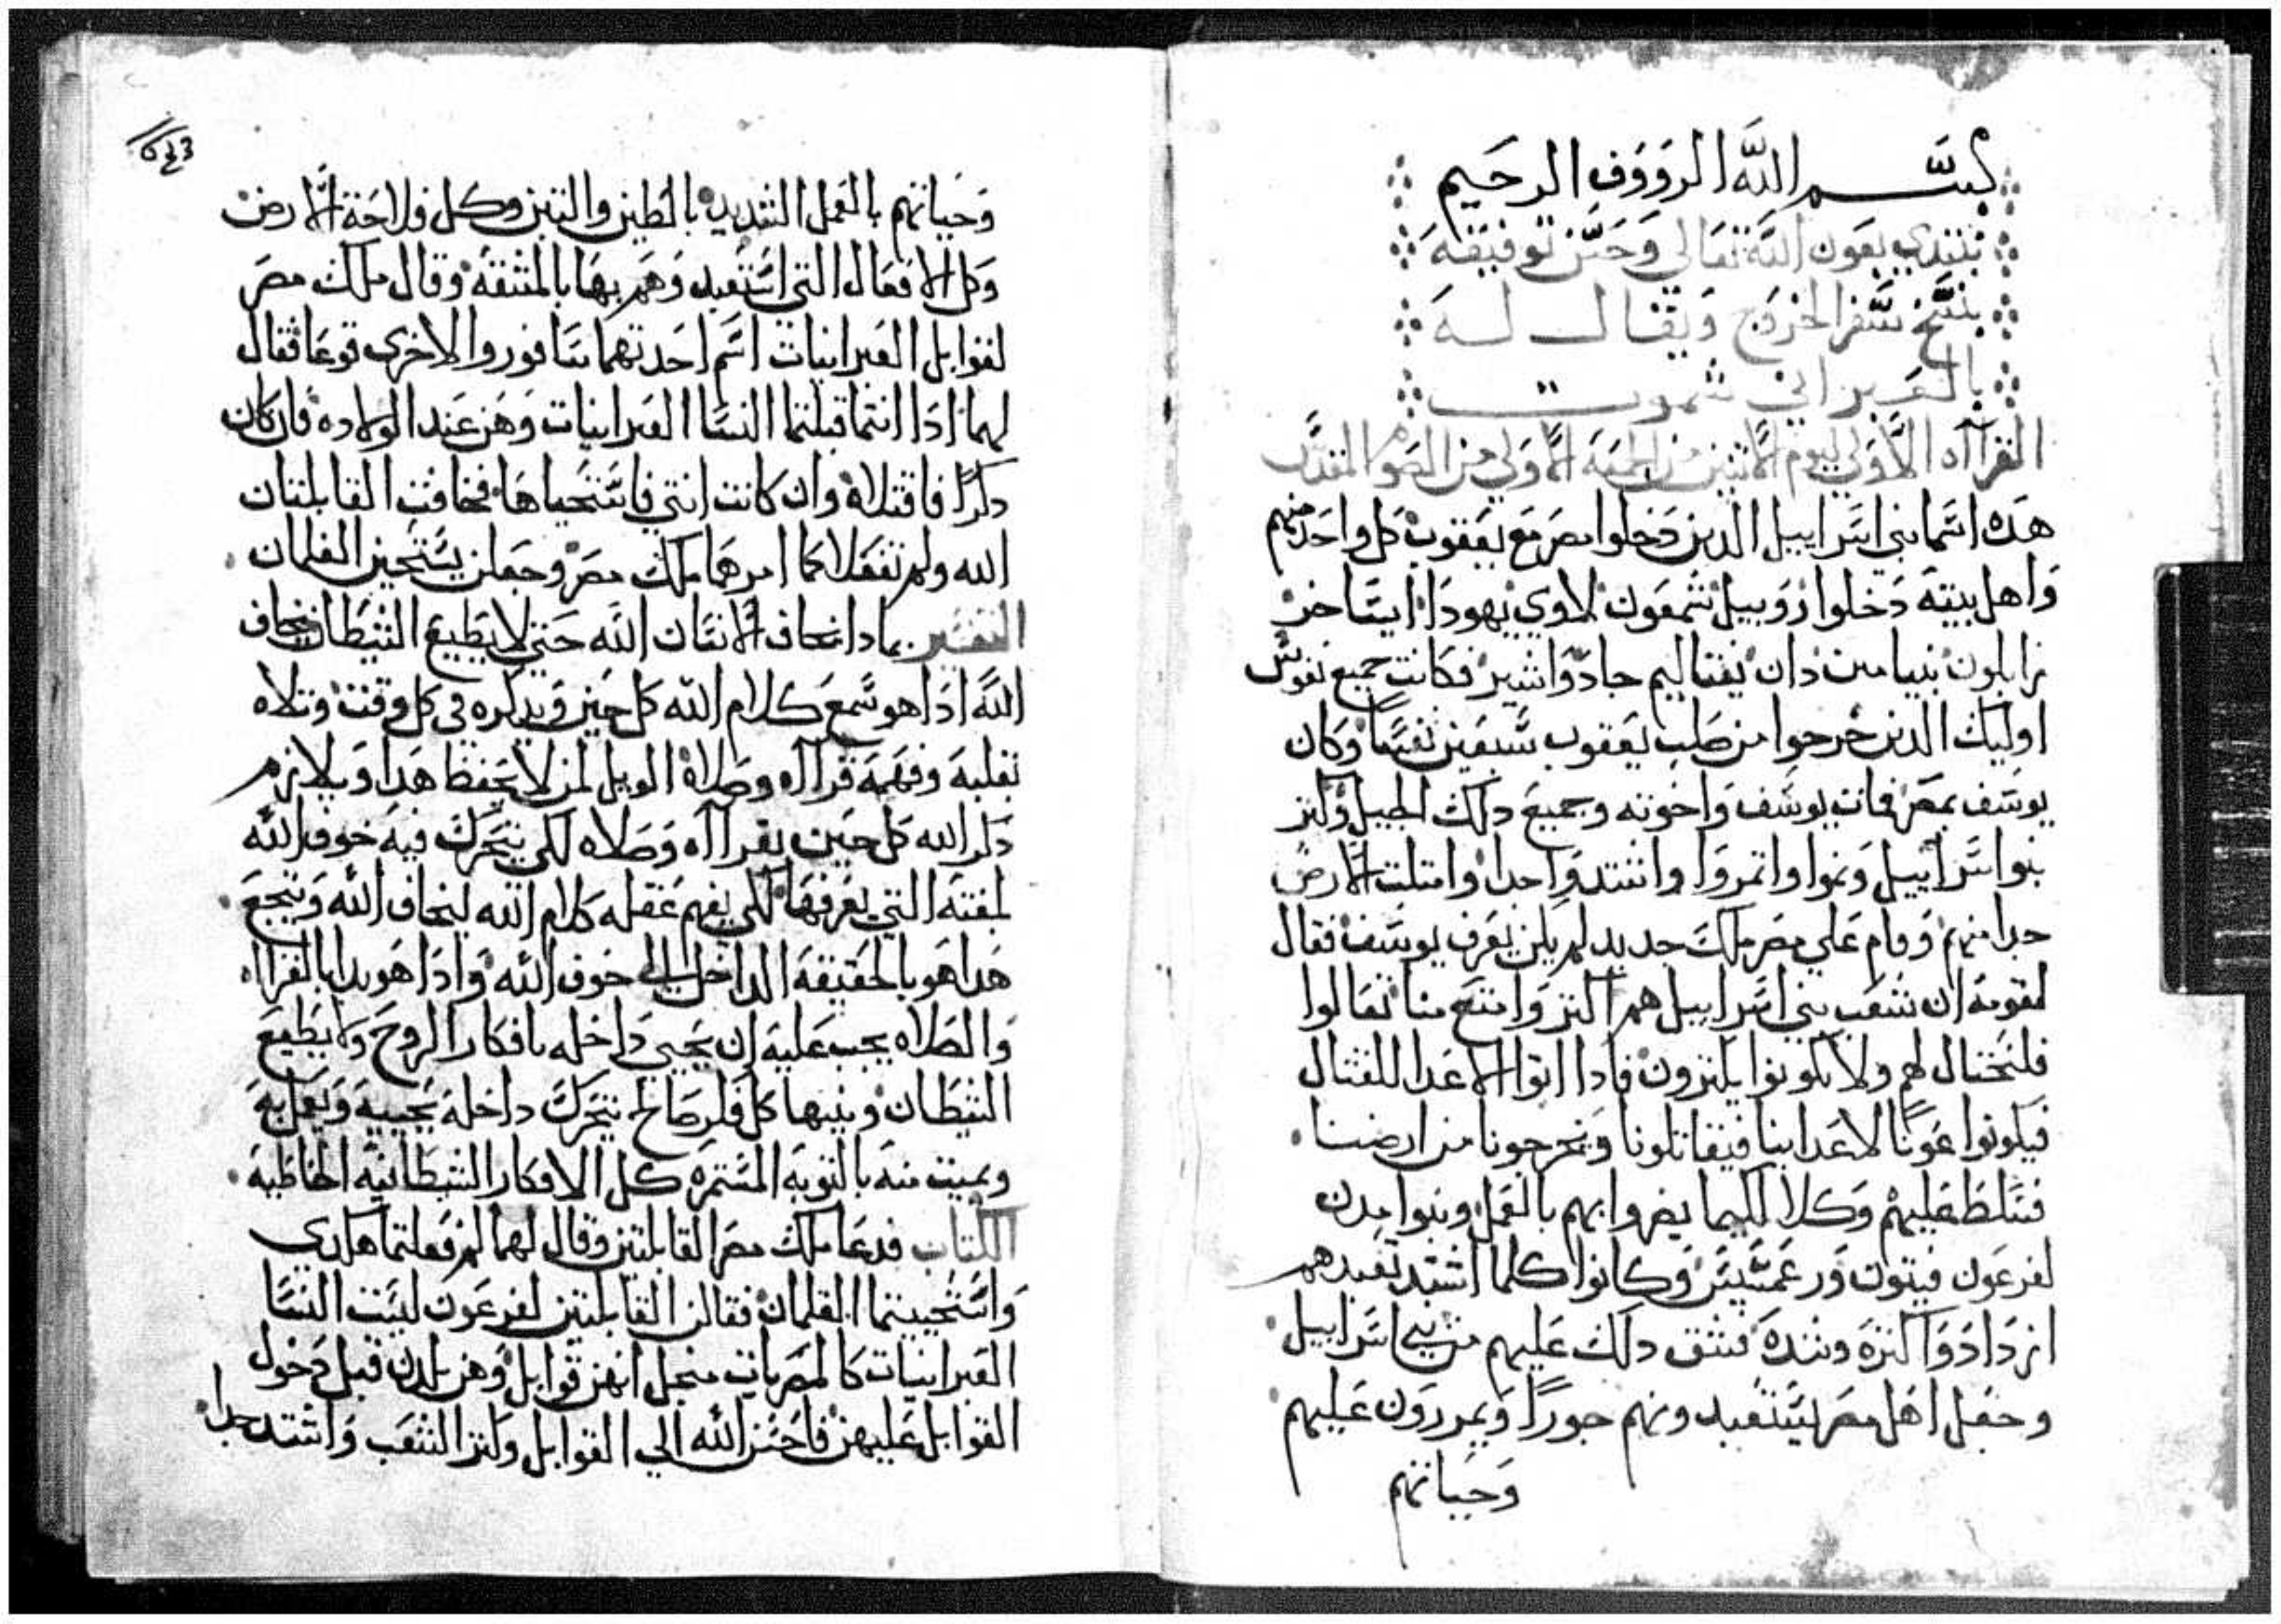 بسم الله الرووف الرحيم
نبتدي بعون الله تعالي وحسن توفيقه
بنسخ سفر الخروج ويقال له
بالعبراني شموت
القراآه الاولي ليوم الاثنين من الجمعه الاولي من الصوم المقدس
هده اسما بني اسراييل الدين دخلوا مصر مع يعقوب كل واحد منهم
واهل بيته دخلوا روبيل شمعون لاوي يهودا ايساخر
زابلون بنيامين دان نفتاليم جاد واشير فكانت جميع نفوس
اوليك الدين خرجوا من صلب يعقوب سبعين نفسا وكان
يوسف بمصر فمات يوسف واخوته وجميع دلك الجيل وكثر
بنوا اسراييل ونموا واثمروا واشتدوا جدا وامتلت الارض
جدا منهم وقام علي مصر ملك جديد لم يكن يعرف يوسف فقال
لقومه ان شعب بني اسراييل هم اكثر وامنع منا تعالوا
فلنحتال لهم ولا يكونوا يكثرون فادا اتوا الاعدا للقتال
فيكونوا عونا لاعداينا فيقاتلونا ونخرجونا من ارضنا
فسلط عليهم وكلا لكيما يضروا بهم بالعمل وبنوا مدن
لفرعون فيتون ورعمسيس وكانوا كلما اشتد تعبدهم
ازدادوا كثره وشده فشق دلك عليهم من بني اسراييل
وجعل اهل مصر يستعبدونهم جورا ويمررون عليهم
وحياتهم
وحياتهم بالعمل الشديد بالطين والتبن وكل فلاحة الارض
وكل الافعال التي استعبدوهم بها بالمشقه وقال ملك مصر
لقوابل العبرانيات اسم احدتهما سافورو الاخري توعا فقال
لهما ادا انتما قبلتما النسا العبرانيات وهن عند الولاده فان كان
دكرا فاقتلاه وان كانت انتي فاستحياها فخافت القابلتان
الله ولم تفعلا كما امرهما ملك مصر وجعلن يستحين الغلمان
التفسير بمادا نخاف الانسان الله حتي لا يطيع الشيطان نخاف
الله ادا هو سمع كلام الله كل حين ويدكره في كل وقت وتلاه
بقلبه وفهمه قراآه وصلاه الويل لمن لا يحفظ هدا ويلازم
دكر الله كل حين بقراآه وصلاه لكي يتحرك فيه خوف الله
لمغته التي يعرفها لكي يفهم عقله كلام الله ليخاف الله ويتجع
هدا هو بالحقيقه الداخل الي خوف الله وادا هو بدا بالقراآه
والصلاه يجب عليه ان يحيي داخله بافكار الروح ولا يطيع
الشيطان وينبها كل فكر صالح يتحرك داخله يحييه ويعمل به
ويميت منه بالتوبه المستمره كل الافكار الشيطانيه الخاطيه
الكتاب فدعا ملك مصر القابلتين وقال لهما لم فعلتما هكدي
واستحييتما الغلمان فقالن القابلتين لفرعون ليست النسا
العبرانيات كالمصريات منجل انهن قوابل وهن يلدن قبل دخول
القوابل عليهن فاحسن الله الي القوابل وكثر الشعب واشتد جدا